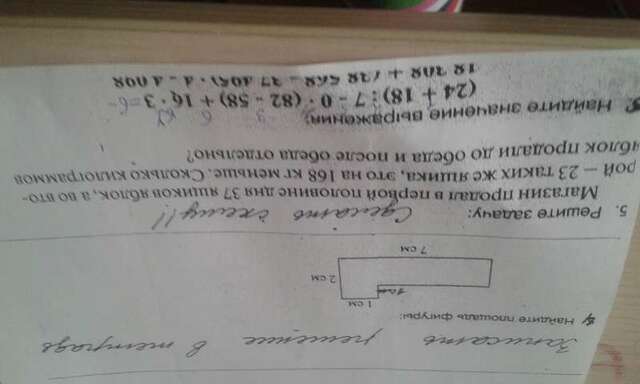 Записать решение в тетрадь
Найдите площадь фигуры:
1 см
1см
2 см
7 см
5. Решите задачу: Сделать схему!!
Магазин продал в первой половине дня 37 ящиков яблок, а во вто-
рой — 23 таких же ящика, это на 168 кг меньше. Сколько килограммов
яблок продали до обеда и после обеда отдельно?
Найдите значение выражения:
(24 + 18) : 7 - 0 · (82 - 58) + 16 · 3